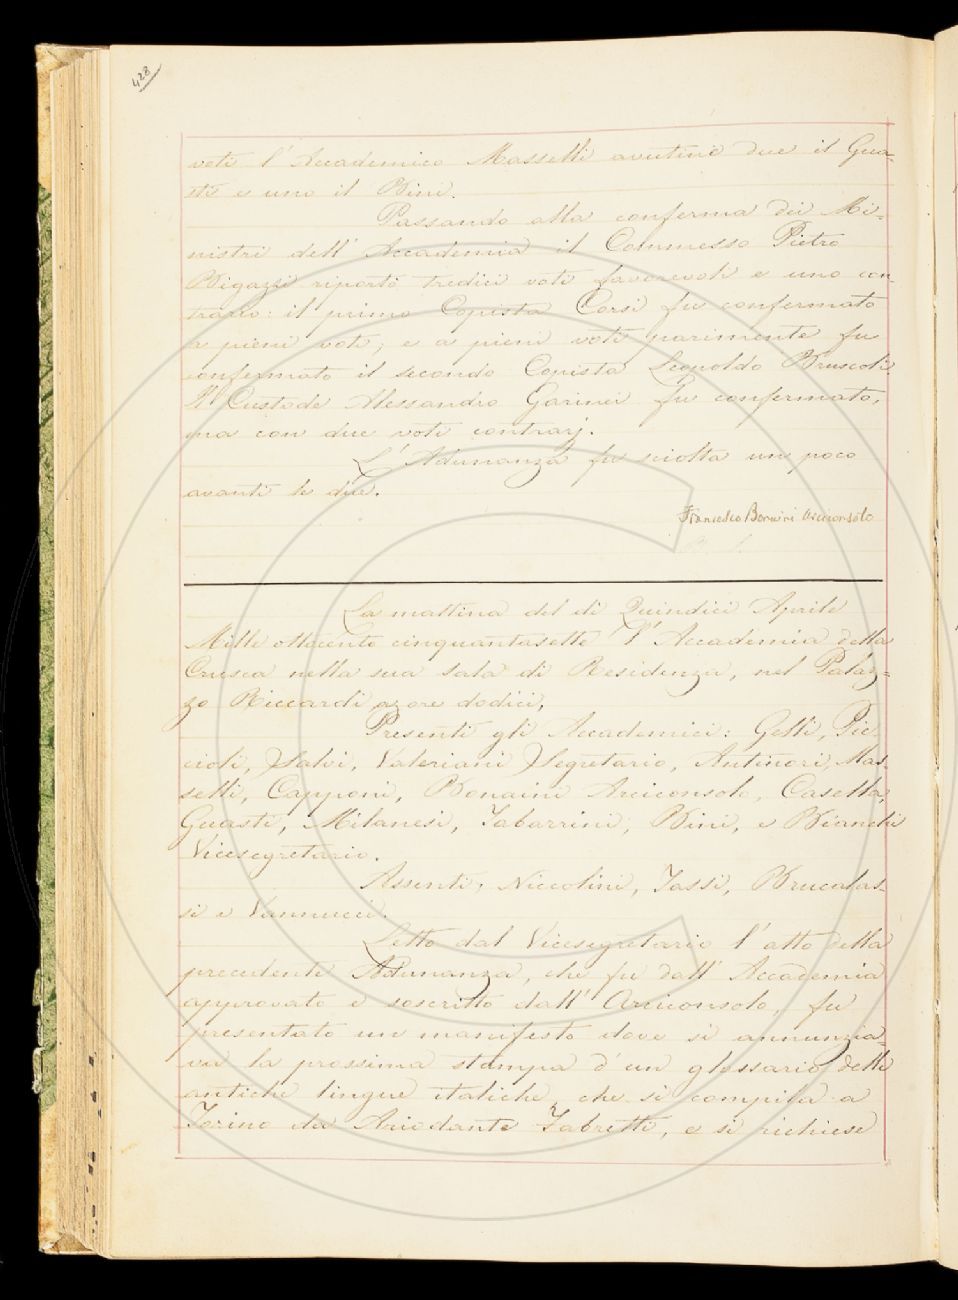 428
voti l'Accademico Masselli avutine due il Gua-
sti e uno il Bini.
Passando alla conferma dei Mi-
nistri dell'Accademia il Commesso Pietro
Bigazzi riportò tredici voti favorevoli e uno con-
trario: il primo Copista Corsi fu confermato
a pieni voti; e a pieni voti parimente fu
confermato il secondo Copista Leopoldo Bruscoli.
Il Custode Alessandro Garinei fu confermato,
ma con due voti contrarj.
L'Adunanza fu sciolta un poco
avanti le due.
Francesco Bonaini Arciconsolo
La mattina del dì Quindici Aprile
Mille ottocento cinquantasette l'Accademia della
Crusca nella sua sala di Residenza, nel Palaz-
zo Riccardi a ore dodici,
Presenti gli Accademici: Gelli, Pic-
cioli, Salvi, Valeriani Segretario, Antinori, Mas-
selli, Capponi, Bonaini Arciconsolo, Casella,
Guasti, Milanesi, Tabarrini, Bini, e Bianchi
Vicesegretario.
Assenti, Niccolini, Tassi, Brucalas-
si e Vannucci.
Letto dal Vicesegretario l'atto della
precedente Adunanza, che fu dall'Accademia
approvato e soscritto dall'Arciconsolo, fu
presentato un manifesto dove si annunzia-
va la prossima stampa d'un glossario delle
antiche lingue italiche, che si compila a
Torino da Ariodante Fabretti, e si richiese